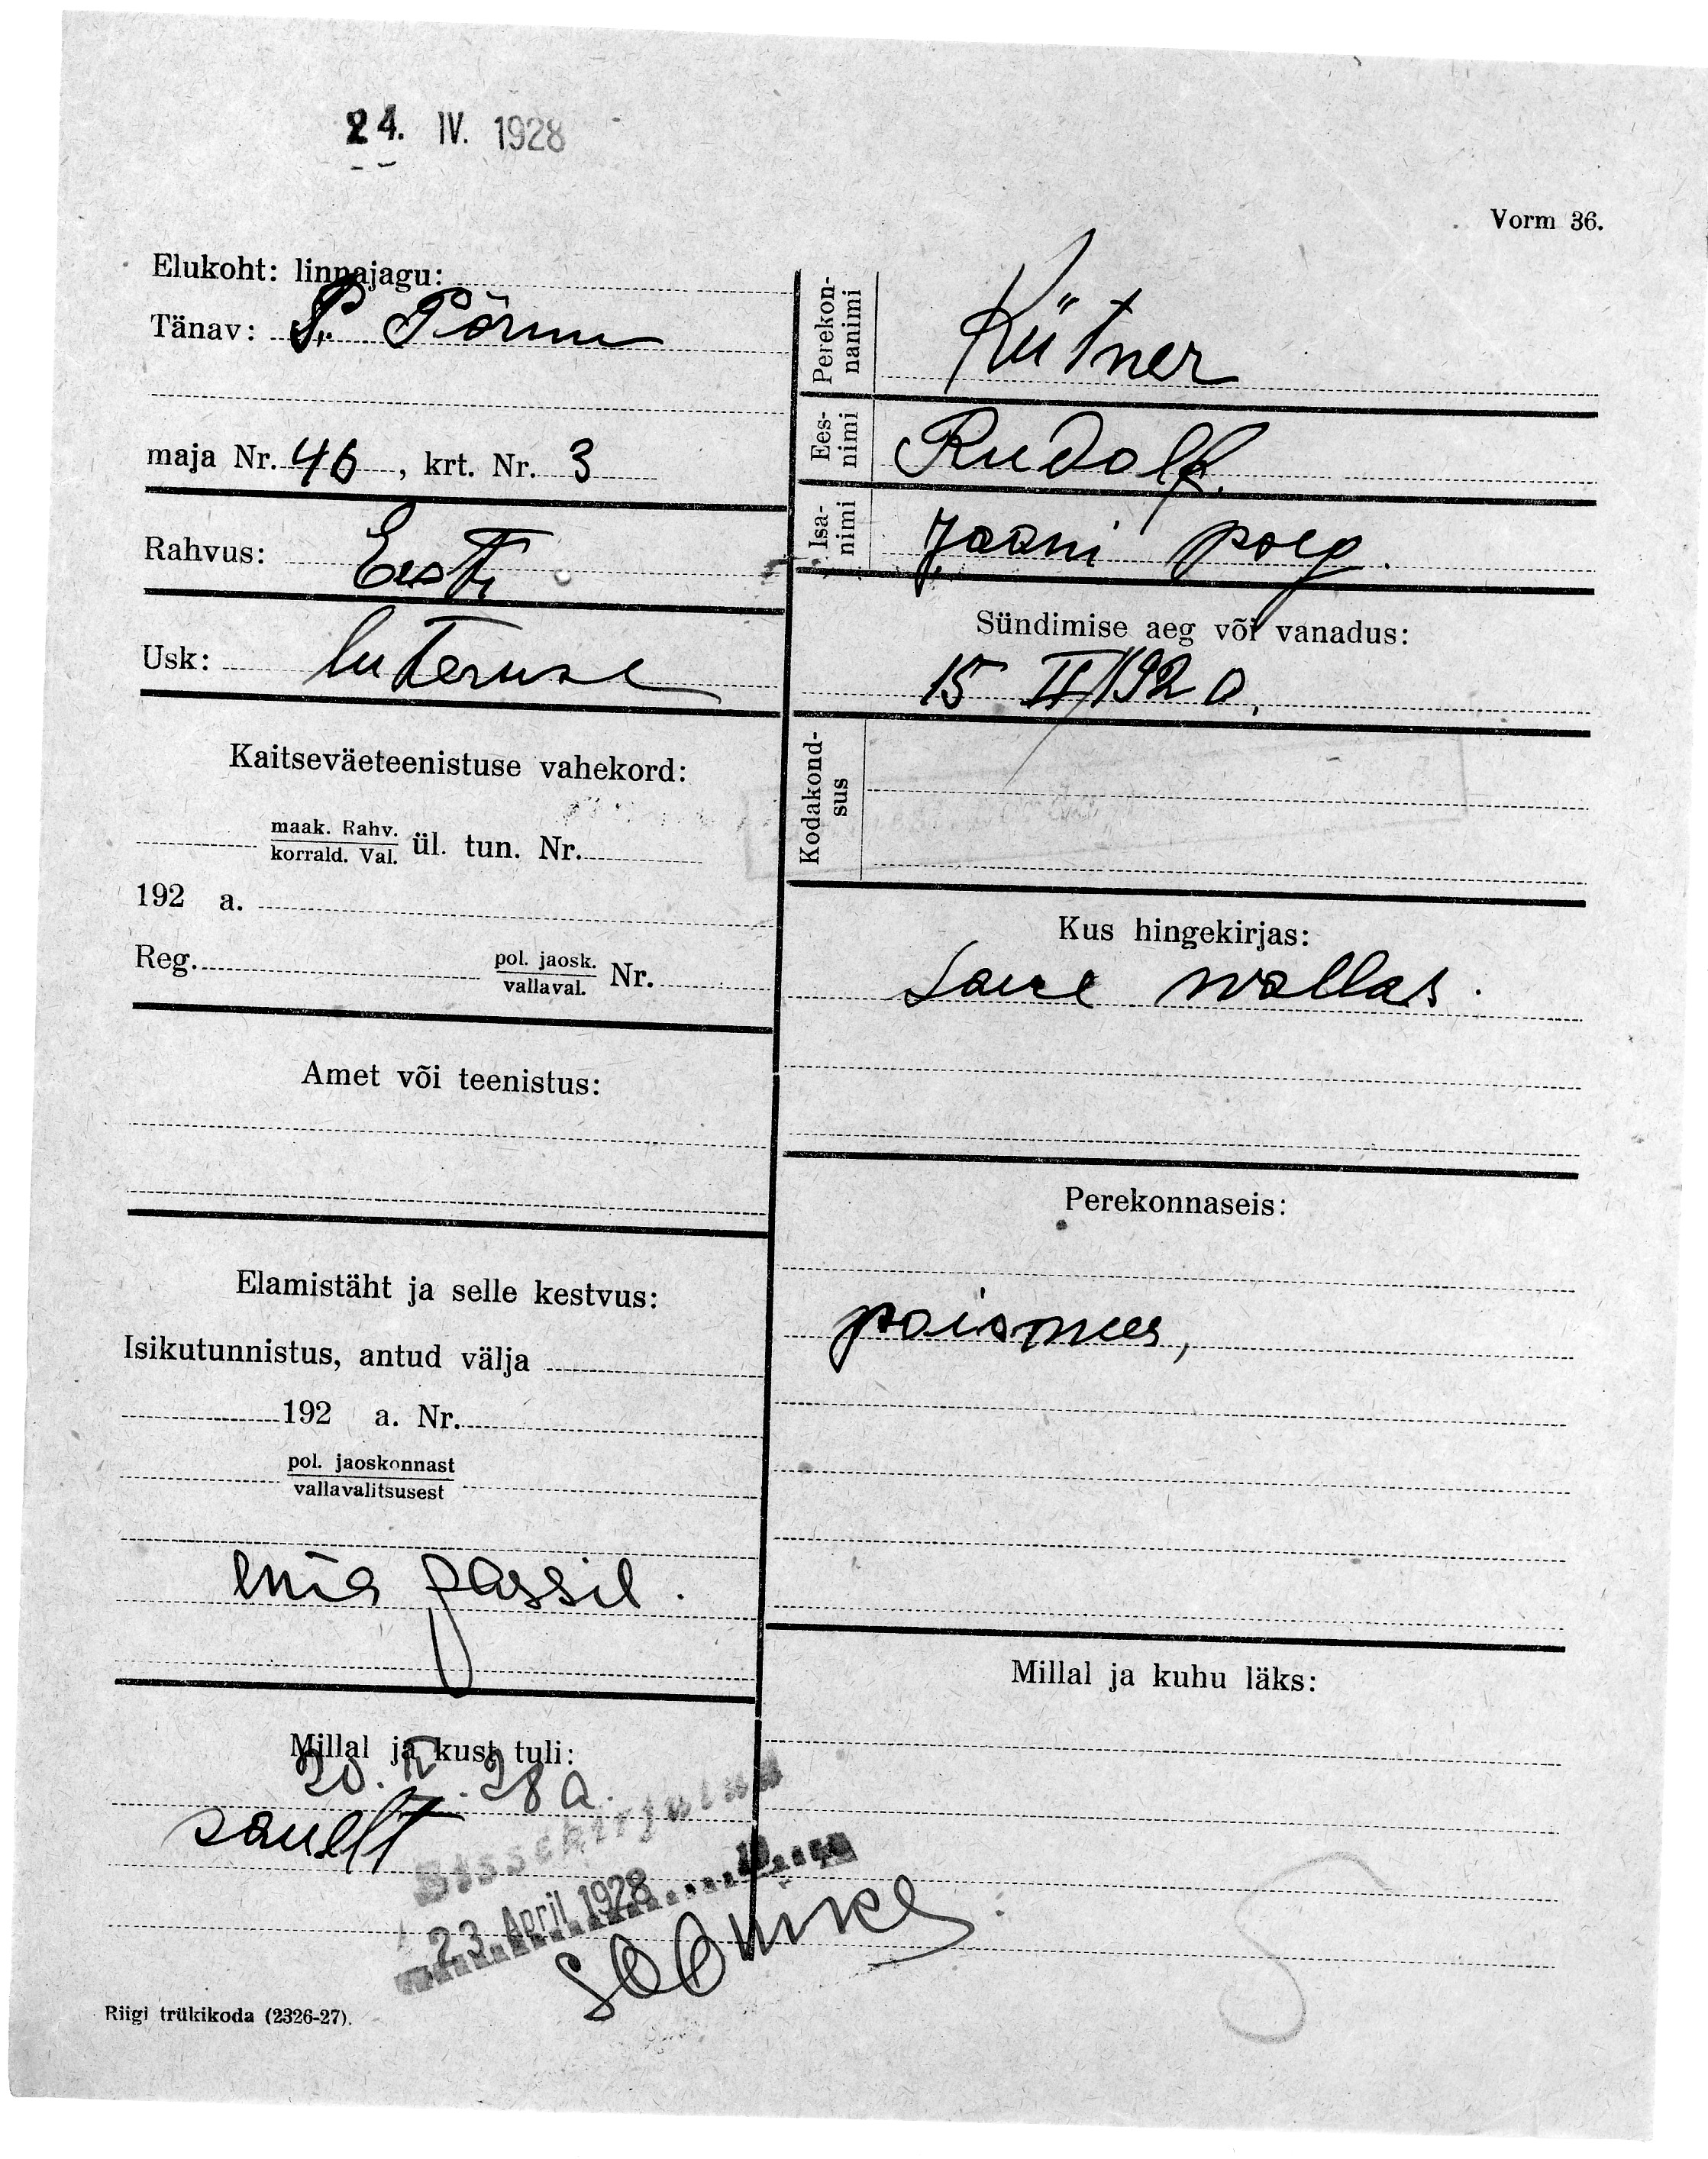 24. IV. 1928
Vorm 36.
Elukoht: linnajagu:
Tänav: P. Pärnu
maja Nr. 46, krt. Nr. 3
Rahvus: Eesti
Usk: luteruse
Kaitseväeteenistuse vahekord:
maak. Rahv.
korrald. Val. ül. tun. Nr.
192 a.
Reg. pol. jaosk.
vallaval. Nr.
Amet või teenistus:
Elamistäht ja selle kestvus:
Isikutunnistus, antud välja
192 a. Nr.
pol. jaoskonnast
vallavalitsusest
passil.
Millal ja kust tuli:
20. IV. 28 a.
sauelt
Sissekirjutud
23. April 1928
Riigi trükikoda (2326-27).
Perekon-
nanimi
Kütner
Ees-
nimi
Rudolf.
Isa-
nimi
Jaani poeg.
Sündimise aeg või vanadus:
15 II 1920.
Kodakond-
sus
Kus hingekirjas:
Saue wallas.
Perekonnaseis:
poismees,
Millal ja kuhu läks: